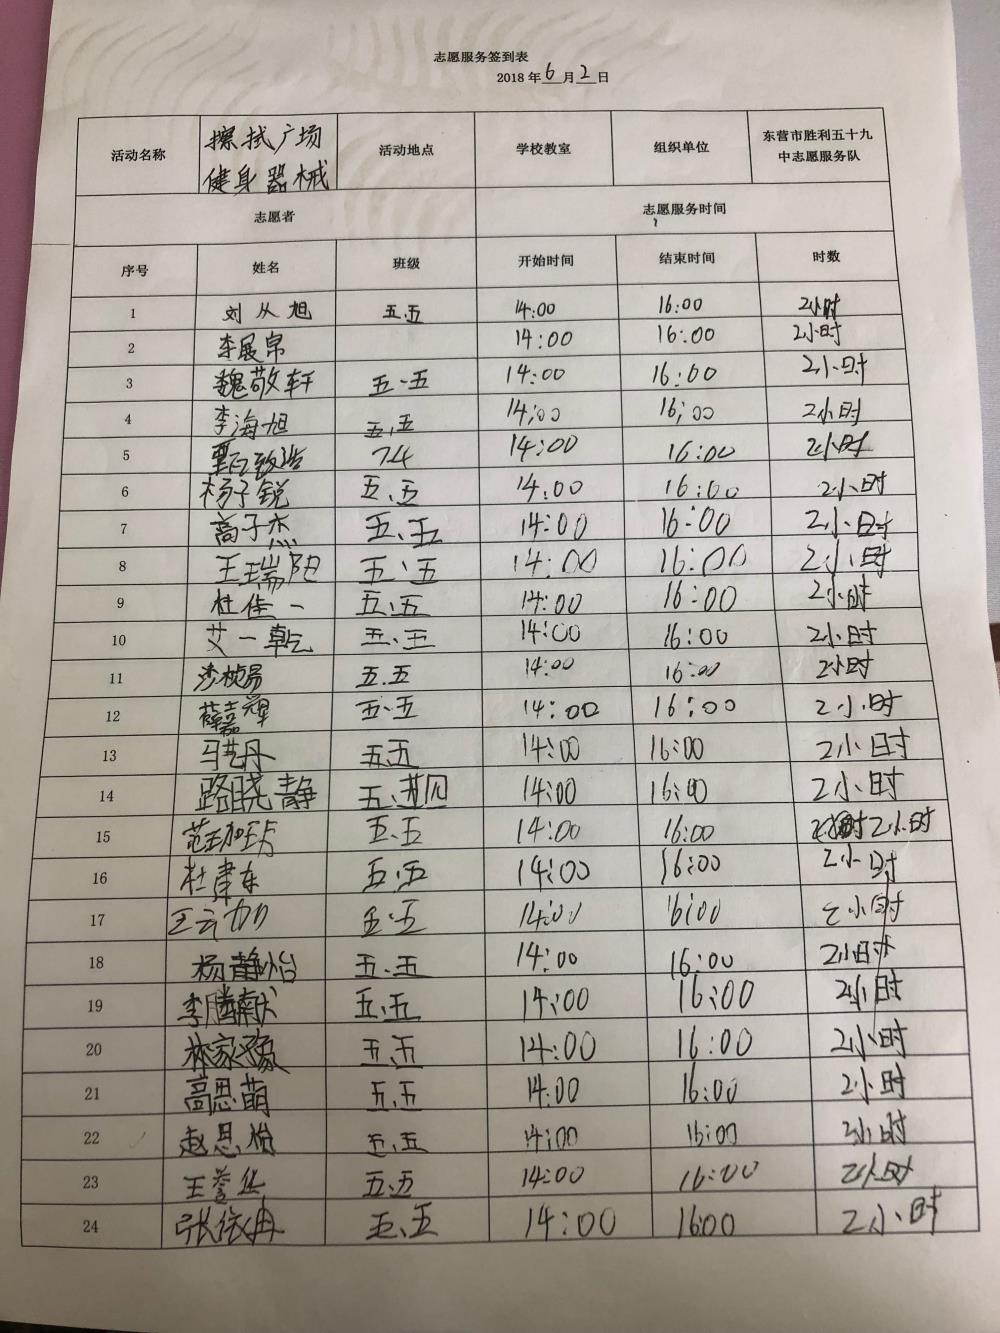 志愿服务签到表
2018年6月2日
活动名称 擦拭广场健身器械 活动地点 学校教室 组织单位 东营市胜利五十九中志愿服务队
志愿者 志愿服务时间
序号 姓名 班级 开始时间 结束时间 时数
1 刘从旭 五.五 14:00 16:00 2小时
2 李展帛 14:00 16:00 2小时
3 魏敬轩 五.五 14:00 16:00 2小时
4 李海旭 五.五 14:00 16:00 2小时
5 甄致浩 14:00 16:00 2小时
6 杨子锐 五.五 14:00 16:00 2小时
7 高子杰 五、五 14:00 16:00 2小时
8 王瑞阳 五、五 14:00 16:00 2小时
9 杜佳一 五.五 14:00 16:00 2小时
10 艾一乾 五.五 14:00 16:00 2小时
11 五.五 14:00 16:00 2小时
12 薛嘉犟 五.五 14:00 16:00 2小时
13 马艺丹 五五 14:00 16:00 2小时
14 路晓静 五、 14:00 16:00 2小时
15 范珈玏 五.五 14:00 16:00 2小时
16 杜聿东 五.五 14:00 16:00 2小时
17 王云加 五.五 14:00 16:00 2小时
18 杨静怡 五.五 14:00 16:00 2小时
19 李腾献 五、五 14:00 16:00 2小时
20 林家豫 五.五 14:00 16:00 2小时
21 高思萌 五.五 14:00 16:00 2小时
22 赵思怡 五.五 14:00 16:00 2小时
23 王誉丝 五.五 14:00 16:00 2小时
24 张依冉 五、五 14:00 16:00 2小时